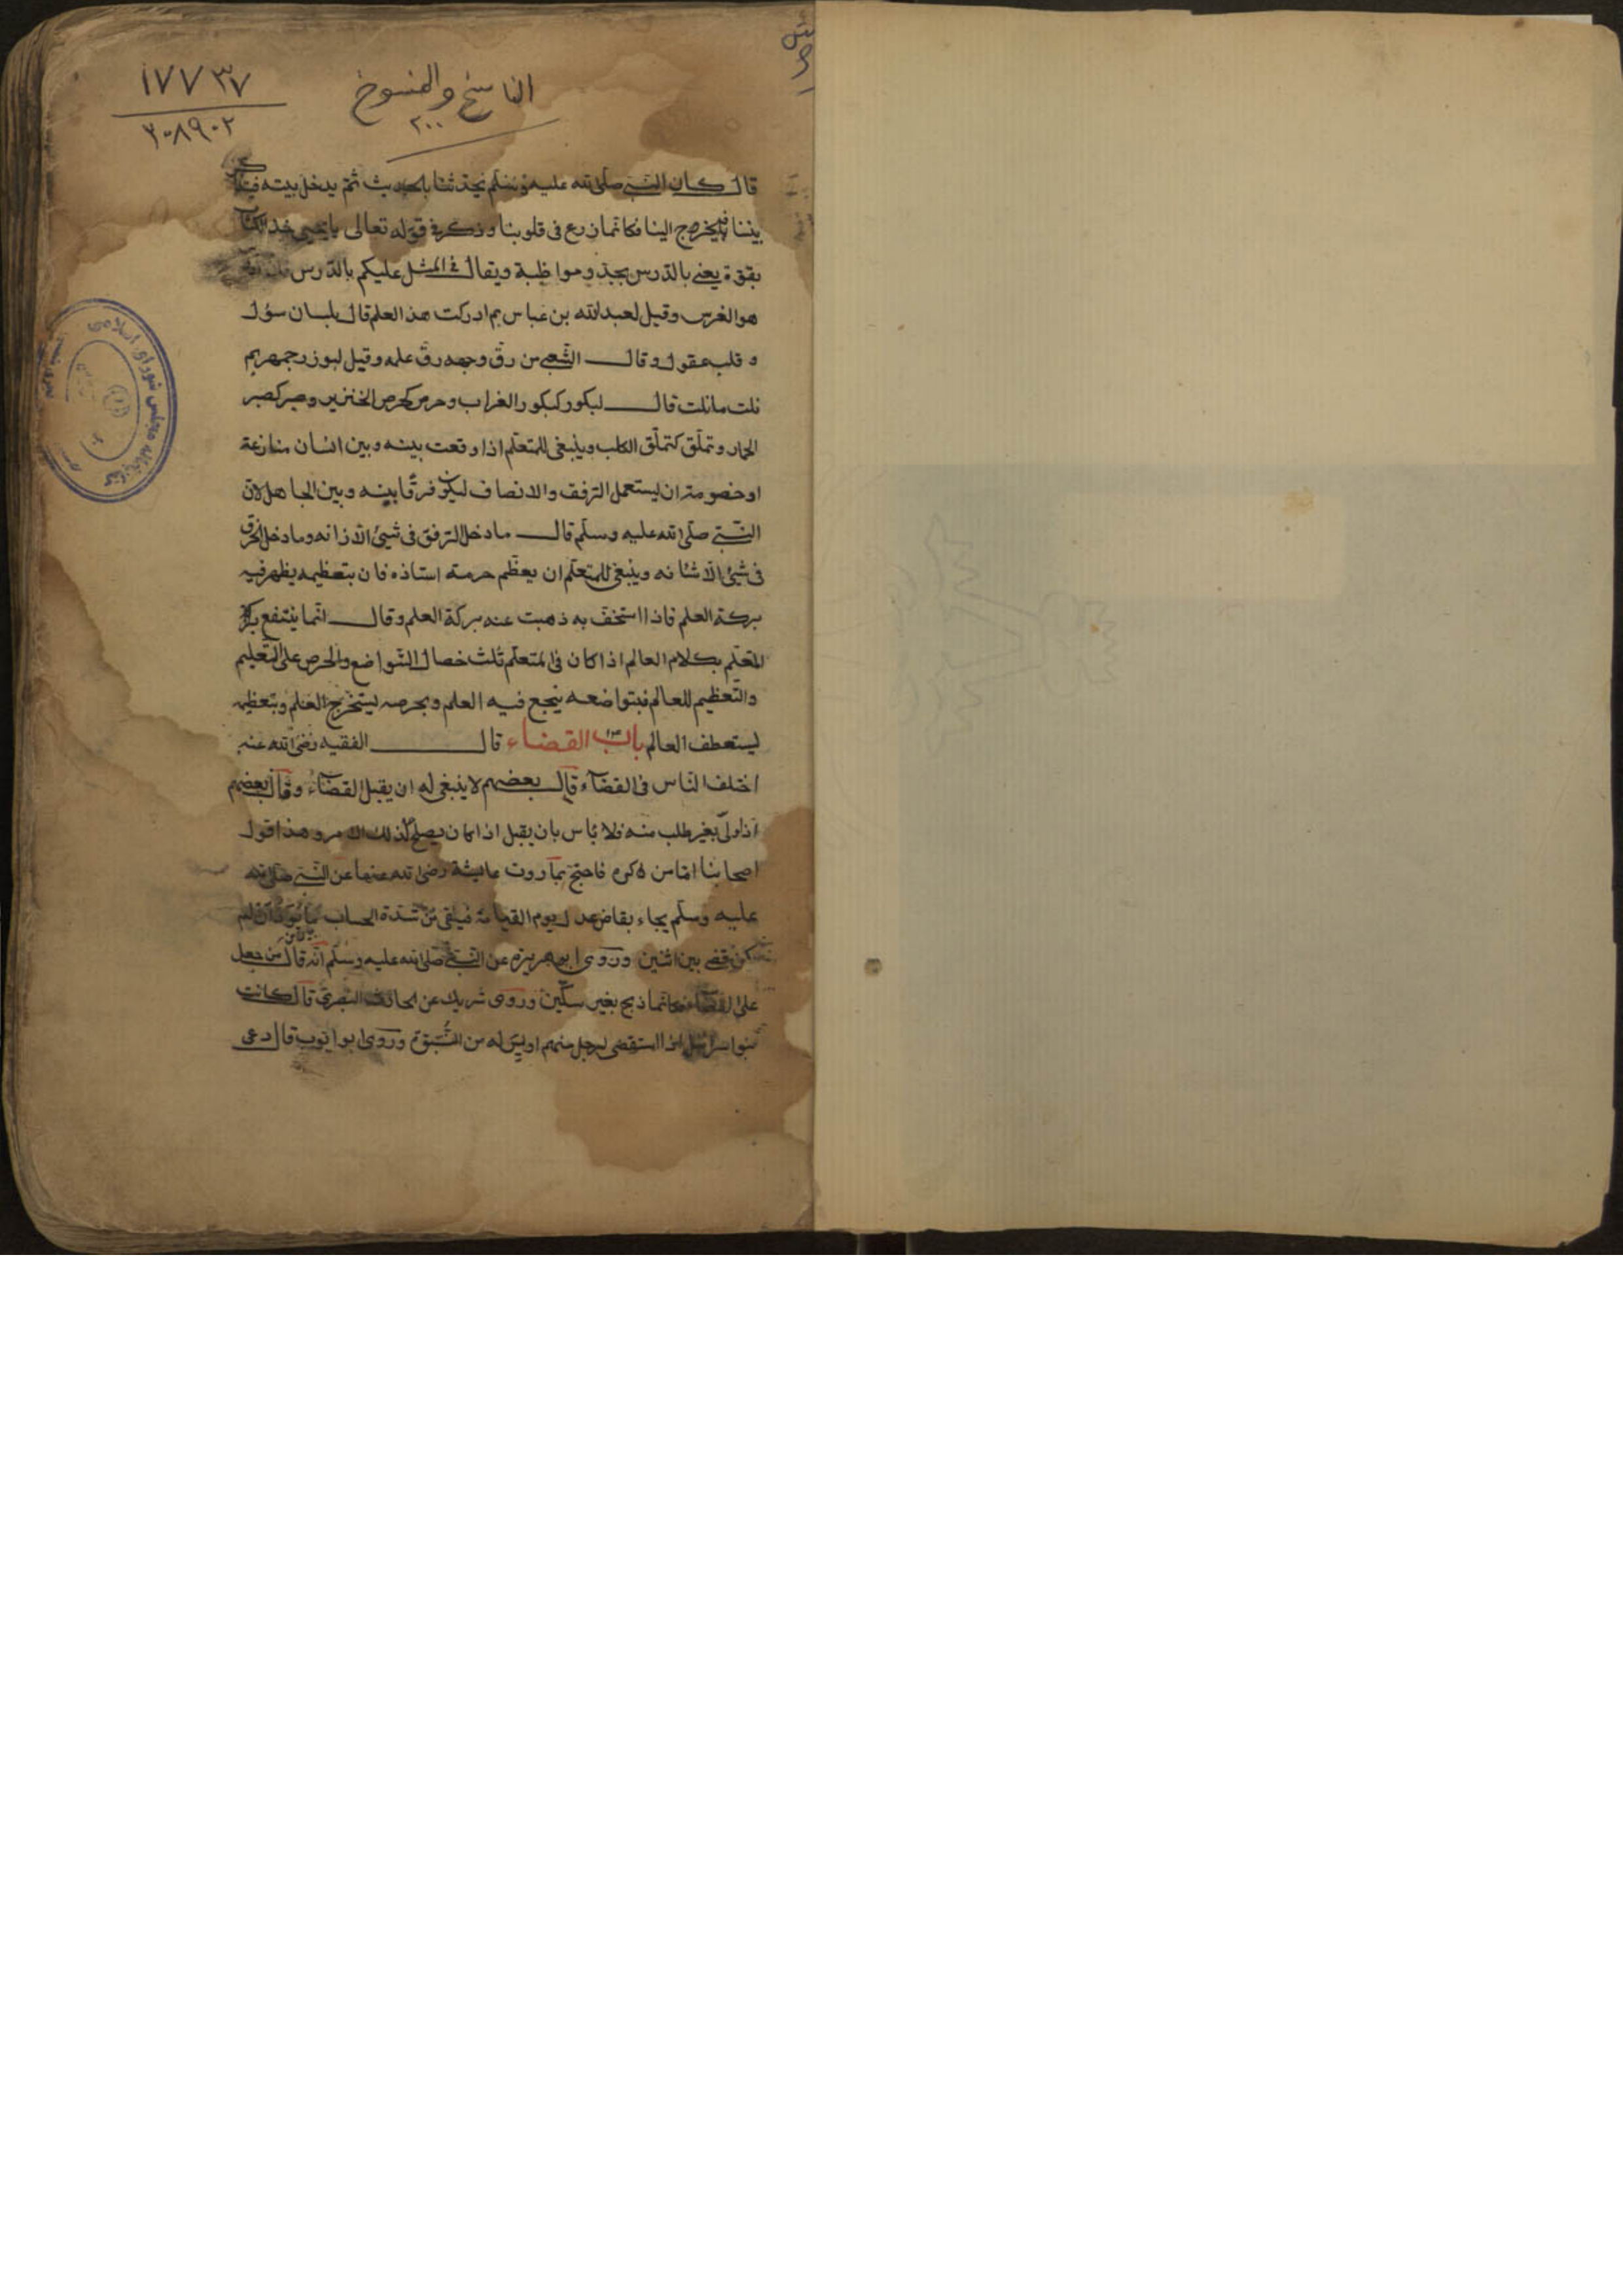 ١٧٧٣٧
٢٠٨٩٠٢
الناسخ والمنسوخ
٢٠٠
قال كان النبى صلى الله عليه وسلم يحدثنا بالحديث ثم يدخل بيته
بيننا ثم يخرج الينا فكانما زرع فى قلوبنا وذكر فى قوله تعالى يا يحيى خذ الكتاب
بقوة يعنى بالدرس بجد ومواظبة ويقال فى المثل عليكم بالدرس
هو الغرس وقيل لعبد الله بن عباس بم ادركت هذ العلم قال بلسان سؤل
و قلب عقول وقال الشعبى من رق وجهه رق علمه وقيل لبوزرجمهر بم
نلت ما نلت قال لبكور كبكور الغراب وحرص كحرص الخنزير وصبر كصبر
الحمار وتملق كتملق الكلب وينبغى للمتعلم اذا وقعت بينه وبين انسان منازعة
او خصومة ان يستعمل الرفق والانصاف ليكون فرقا بينه وبين الجاهل لان
النبى صلى الله عليه وسلم قال ما دخل الرفق فى شيئ الا زانه وما دخل الخرق
فى شيئ الا شانه وينبغى للمتعلم ان يعظم حرمة استاذه فان بتعظيمه يظهر فيه
بركة العلم فاذا استخف به ذهبت عنه بركة العلم وقال انما ينتفع
المتعلم بكلام العالم اذا كان فى المتعلم ثلث خصال التواضع والحرص على التعليم
والتعظيم للعالم فبتواضعه ينجع فيه العلم وبحرصه يستخرج العلم وبتعظيمه
يستعطف العالم باب القضاء قال الفقيه رضى الله عنه
اختلف الناس فى القضاء قال بعضهم لا ينبغى له ان يقبل القضاء وقال بعضهم
اذا ولى بغير طلب منه فلا باس بان يقبل اذا كان يصلح لذلك الامر وهذا قول
اصحابنا اما من كره فاحتج بما روت عايشة رضى الله عنها عن النبى صلى الله
عليه وسلم يجاء بقاض عدل يوم القيامة فيلقى من شدة الحساب ما يود ان لم
يكن قضى بين اثنين وروى ابو هريرة عن النبى صلى الله عليه وسلم انه قال من جعل
على القضاء فكانما ذبح بغير سكين وروى شريك عن الحارث البصرى قال كانت
بنوا اسرائيل اذا استقضى لرجل منهم اويس له من النبوة وروى ابو ايوب قال دعى